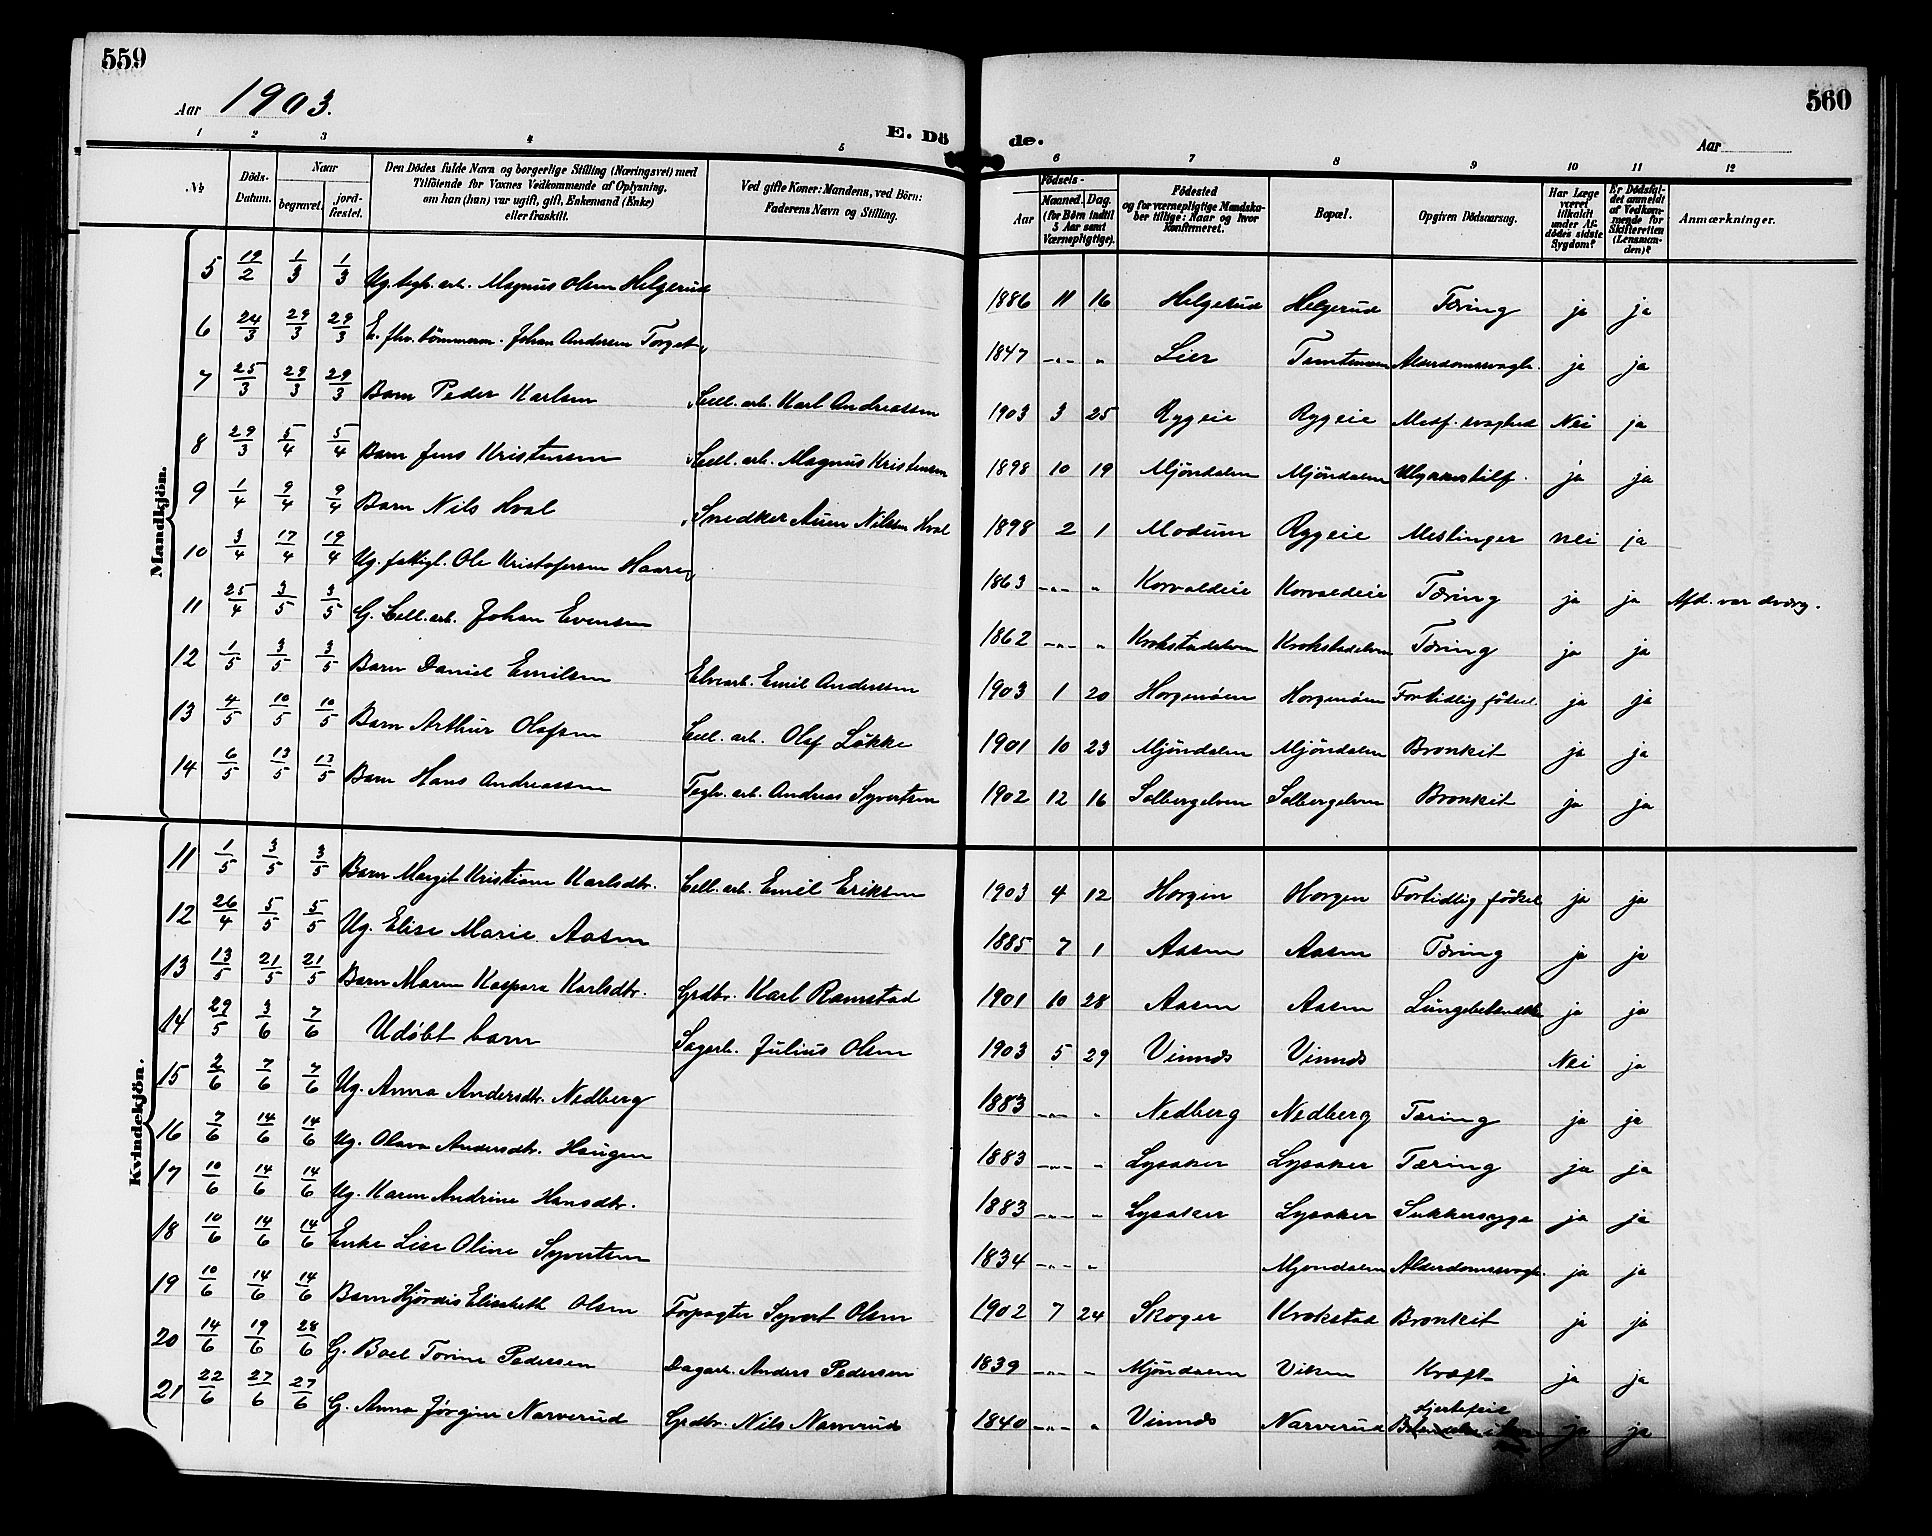 559
560
Aar 1903.
Aar
E. Dö
de.
1 2 3 4 5 6 7 8 9 10 11 12
No
Döds-Datum.
Naar
begravet.
jord-festet.
Den Dödes fulde Navn og borgerlige Stilling (Næringsvei) med
Tilföiende for Voxnes Vedkommende af Oplysning,
om han (hun) var ugift, gift, Enkemand (Enke)
eller fraskilt.
Ved gifte Koner: Mandens, ved Börn:
Faderens Navn og Stilling.
Födsels-
Aar
Maaned. Dag.
(for Börn indtil
5 Aar samt
Værnepligtige).
Födested
og for værnepligtige Mandska-
ber tillige: Naar og hvor
konfirmeret.
Bopæl.
Opgiven Dödsaarsag.
Har Læge
været
tilkaldt
under Af-
dödes sidste
Sygdom?
Er Dödsfal-
det anmeldt
af Vedkom-
mende for
Skifteretten
(Lensman-
den)?
Anmærkninger.
Mandkjön.
5 19/2 1/3 1/3 Ug. teglv. arb. Magnus Olsen Helgerud 1886 11 16 Helgerud Helgerud Tæring ja ja
6 24/3 29/3 29/3 E. fhv. tömmerm. Johan Andersen Torget 1847 -„- „ Lier Tomtemoen Alderdomssvagh. ja ja
7 25/3 29/3 29/3 Barn Peder Karlsen Cell. arb. Karl Andreassen 1903 3 25 Rygeie Rygeie Medf. svaghed Nei ja
8 29/3 5/4 5/4 Barn Jens Kristensen Cell. arb. Magnus Kristensen 1898 10 19 Mjöndalen Mjöndalen Ulykkestilf. ja ja
9 1/4 9/4 9/4 Barn Nils Hval Snedker Auen Nilssen Hval 1898 2 1 Modum Rygeie Meslinger nei ja
10 3/4 17/4 19/4 Ug. fattigl. Ole Kristofersen Haare 1863 -„- „ Korvaldeie Korvaldeie Tæring ja ja Afd. var dværg.
11 25/4 3/5 3/5 G. Cell. arb. Johan Evensen 1862 -„- „ Krokstadelven Krokstadelven Tæring ja ja
12 1/5 3/5 3/5 Barn Daniel Emilsen Elvearb. Emil Anderssen 1903 1 20 Horgenöen Horgenöen Fortidlig födsel ja ja
13 4/5 10/5 10/5 Barn Arthur Olafsen Cell. arb. Olaf Løkke 1901 10 23 Mjöndalen Mjöndalen Bronkit ja ja
14 6/5 13/5 13/5 Barn Hans Andreassen Teglv. arb. Andreas Syvertsen 1902 12 16 Solbergelven Solbergelven Bronkit ja ja
Kvindekjön.
11 1/5 3/5 3/5 Barn Margit Kristiane Karlsdtr. Cell. arb. Emil Eriksen 1903 4 12 Horgen Horgen Fortidlig födsel ja ja
12 26/4 5/5 5/5 Ug. Elise Marie Aasen 1885 7 1 Aasen Aasen Tæring ja ja
13 13/5 21/5 21/5 Barn Maren Kaspara Karlsdtr. Grdbr. Karl Ramstad 1901 10 28 Aasen Aasen Lungebetændelse ja ja
14 29/5 3/6 7/6 Udøbt barn Sagarb. Julius Olsen 1903 5 29 Vinnds Vinnds Nei ja
15 2/6 7/6 7/6 Ug. Anna Andersdtr. Nedberg 1883 -„- „ Nedberg Nedberg Tæring ja ja
16 7/6 14/6 14/6 Ug. Olava Andersdtr. Haugen 1883 -„- „ Lysaker Lysaker Tæring ja ja
17 10/6 14/6 14/6 Ug. Karen Andrine Hansdtr. 1883 -„- „ Lysaker Lysaker Sukkersyge ja ja
18 10/6 14/6 14/6 Enke Lise Oline Syvertsen 1834 -„- „ Mjøndalen Alderdomssvagh. ja ja
19 10/6 14/6 14/6 Barn Hjördis Elisabeth Olsen Forpagter Syvert Olsen 1902 7 24 Skoger Krokstad Bronkit ja ja
20 14/6 19/6 28/6 G. Boel Torine Pedersen Dagarb. Anders Pedersen 1839 -„- „ Mjöndalen Viken Kræft ja ja
21 22/6 27/6 27/6 G. Anna Jörgine Narverud Grdbr. Nils Narverud 1840 -„- „ Vinnds Narverud Hjertefeil ja ja